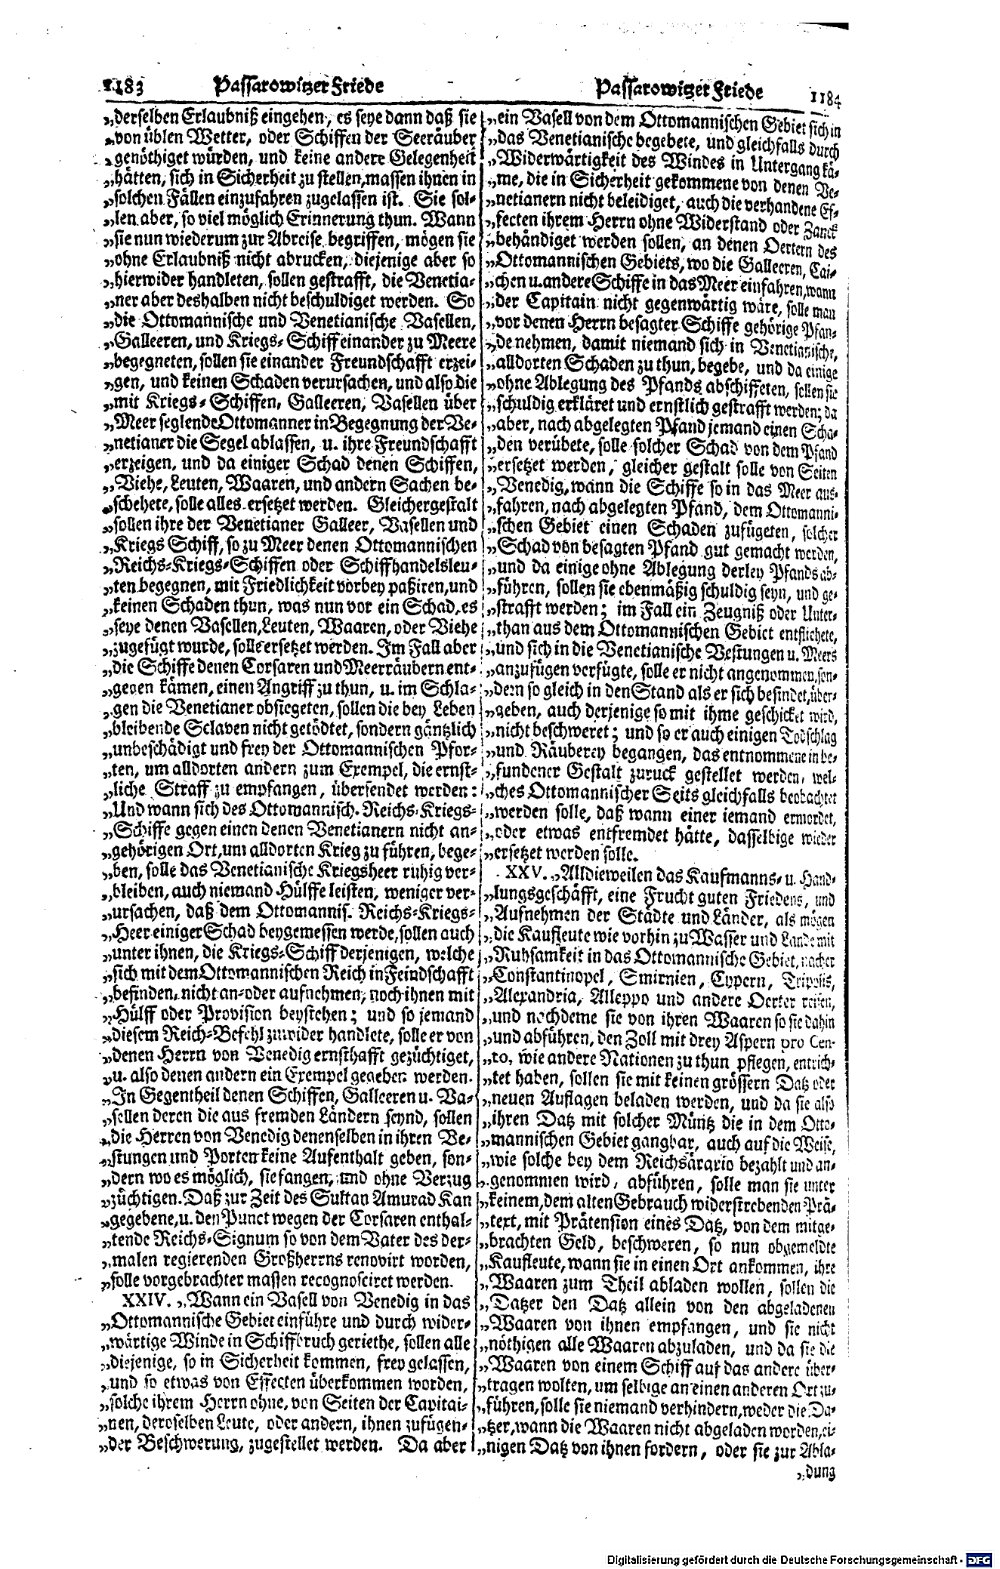 1183 Passarowitzer Friede
Passarowitzer Friede 1184
„derselben Erlaubniß eingehen, es seye dann daß sie
„von üblen Wetter, oder Schiffen der Seeräuber
„genöthiget würden, und keine andere Gelegenheit
„hätten, sich in Sicherheit zu stellen, massen ihnen in
„solchen Fällen einzufahren zugelassen ist. Sie sol-
„len aber, so viel möglich Erinnerung thun. Wann
„sie nun wiederum zur Abreise begriffen, mögen sie
„ohne Erlaubniß nicht abrucken, diejenige aber so
„hierwider handleten, sollen gestrafft, die Venetia-
„ner aber deshalben nicht beschuldiget werden. So
„die Ottomannische und Venetianische Vasellen,
„Galleeren, und Kriegs-Schiff einander zu Meere
„begegneten, sollen sie einander Freundschafft erzei-
„gen, und keinen Schaden verursachen, und also die
„mit Kriegs-Schiffen, Galleeren, Vasellen über
„Meer seglende Ottomanner in Begegnung der Ve-
„netianer die Segel ablassen, u. ihre Freundschafft
„erzeigen, und da einiger Schad denen Schiffen,
„Viehe, Leuten, Waaren, und andern Sachen be-
„schehete, solle alles ersetzet werden. Gleichergestalt
„sollen ihre der Venetianer Galleer, Vasellen und
„Kriegs Schiff, so zu Meer denen Ottomannischen
„Reichs-Kriegs-Schiffen oder Schiffhandelsleu-
„ten begegnen, mit Friedlichkeit vorbey paßiren, und
„keinen Schaden thun, was nun vor ein Schad, es
„seye denen Vasellen, Leuten, Waaren, oder Viehe
„zugefügt wurde, solle ersetzet werden. Im Fall aber
„die Schiffe denen Corsaren und Meerräubern ent-
„gegen kämen, einen Angriff zu thun, u. im Schla-
„gen die Venetianer obsiegeten, sollen die bey Leben
„bleibende Sclaven nicht getödtet, sondern gäntzlich
„unbeschädigt und frey der Ottomannischen Pfor-
„ten, um alldorten andern zum Exempel, die ernst-
„liche Straff zu empfangen, übersendet werden:
„Und wann sich des Ottomannisch. Reichs-Kriegs-
„Schiffe gegen einen denen Venetianern nicht an-
„gehörigen Ort, um alldorten Krieg zu führen, bege-
„ben, solle das Venetianische Kriegsheer ruhig ver-
„bleiben, auch niemand Hülffe leisten, weniger ver-
„ursachen, daß dem Ottomannis. Reichs-Kriegs-
„Heer einiger Schad beygemessen werde, sollen auch
„unter ihnen, die Kriegs-Schiff derjenigen, welche
„sich mit dem Ottomannischen Reich in Feindschafft
„befinden, nicht an- oder aufnehmen, noch ihnen mit
„Hülff oder Provision beystehen; und so jemand
„diesem Reich-Befehl zuwider handlete, solle er von
„denen Herrn von Venedig ernsthafft gezüchtiget,
„u. also denen andern ein Exempel gegeben werden.
„In Gegentheil denen Schiffen, Galleeren u. Va-
„sellen deren die aus fremden Ländern seynd, sollen
„die Herren von Venedig denenselben in ihren Ve-
„stungen und Porten keine Aufenthalt geben, son-
„dern wo es möglich, sie fangen, und ohne Verzug
„züchtigen. Daß zur Zeit des Sultan Amurad Kan
„gegebene, u. den Punct wegen der Corsaren enthal-
„tende Reichs-Signum so von dem Vater des der-
„malen regierenden Großherrns renovirt worden,
„solle vorgebrachter massen recognosciret werden.
XXIV. „Wann ein Vasell von Venedig in das
„Ottomannische Gebiet einführe und durch wider-
„wärtige Winde in Schiffbruch geriethe, sollen alle
„diejenige, so in Sicherheit kommen, frey gelassen,
„und so etwas von Effecten überkommen worden,
„solche ihrem Herrn ohne, von Seiten der Capitai-
„nen, deroselben Leute, oder andern, ihnen zufügen-
„der Beschwerung, zugestellet werden. Da aber
„ein Vasell von dem Ottomannischen Gebiet sich in
„das Venetianische begebete, und gleichfalls durch
„Widerwärtigkeit des Windes in Untergang kä-
„me, die in Sicherheit gekommene von denen Ve-
„netianern nicht beleidiget, auch die verhandene Ef-
„fecten ihrem Herrn ohne Widerstand oder Zanck
„behändiget werden sollen, an denen Oertern des
„Ottomannischen Gebiets, wo die Galleeren, Cai-
„chen u. andere Schiffe in das Meer einfahren, wann
„der Capitain nicht gegenwärtig wäre, solle man
„vor denen Herrn besagter Schiffe gehörige Pfan-
„de nehmen, damit niemand sich in Venetianische,
„alldorten Schaden zu thun, begebe, und da einige
„ohne Ablegung des Pfands abschiffeten, sollen sie
„schuldig erkläret und ernstlich gestrafft werden; da
„aber, nach abgelegten Pfand jemand einen Scha-
„den verübete, solle solcher Schad von dem Pfand
„ersetzet werden, gleicher gestalt solle von Seiten
„Venedig, wann die Schiffe so in das Meer aus-
„fahren, nach abgelegten Pfand, dem Ottomanni-
„schen Gebiet einen Schaden zufügeten, solcher
„Schad von besagten Pfand gut gemacht werden,
„und da einige ohne Ablegung derley Pfands ab-
„führen, sollen sie ebenmäßig schuldig seyn, und ge-
„strafft werden; im Fall ein Zeugniß oder Unter-
„than aus dem Ottomannischen Gebiet entflichete,
„und sich in die Venetianische Vestungen u. Meers
„anzufügen verfügte, solle er nicht angenommen, son-
„dern so gleich in den Stand als er sich befindet, über-
„geben, auch derjenige so mit ihme geschicket wird,
„nicht beschweret; und so er auch einigen Todschlag
„und Räuberey begangen, das entnommene in be-
„fundener Gestalt zuruck gestellet werden, wel-
„ches Ottomannischer Seits gleichfalls beobachtet
„werden solle, daß wann einer jemand ermordet,
„oder etwas entfremdet hätte, dasselbige wieder
„ersetzet werden solle.
XXV. „Alldieweilen das Kaufmanns- u. Hand-
„lungsgeschäfft, eine Frucht guten Friedens, und
„Aufnehmen der Städte und Länder, als mögen
„die Kaufleute wie vorhin zu Wasser und Lande mit
„Ruhsamkeit in das Ottomannische Gebiet, nacher
„Constantinopel, Smirnien, Cypern, Tripolis,
„Alexandria, Alleppo und andere Oerter reisen,
„und nachdeme sie von ihren Waaren so sie dahin
„und abführen, den Zoll mit drey Aspern pro Cen-
„to, wie andere Nationen zu thun pflegen, entrich-
„tet haben, sollen sie mit keinen grössern Datz oder
„neuen Auflagen beladen werden, und da sie also
„ihren Datz mit solcher Müntz die in dem Otto-
„mannischen Gebiet gangbar, auch auf die Weise,
„wie solche bey dem Reichsärario bezahlt und an-
„genommen wird, abführen, solle man sie unter
„keinem, dem alten Gebrauch widerstrebenden Prä-
„text, mit Prätension eines Datz, von dem mitge-
„brachten Geld, beschweren, so nun obgemeldte
„Kaufleute, wann sie in einen Ort ankommen, ihre
„Waaren zum Theil abladen wollen, sollen die
„Datzer den Datz allein von den abgeladenen
„Waaren von ihnen empfangen, und sie nicht
„nöthigen alle Waaren abzuladen, und da sie die
„Waaren von einem Schiff auf das andere über-
„tragen wolten, um selbige an einen anderen Ort zu-
„führen, solle sie niemand verhindern, weder die Da-
„tzer, wann die Waaren nicht abgeladen worden, ei-
„nigen Datz von ihnen fordern, oder sie zur Abla-
„dung
Digitalisierung gefördert durch die Deutsche Forschungsgemeinschaft - DFG